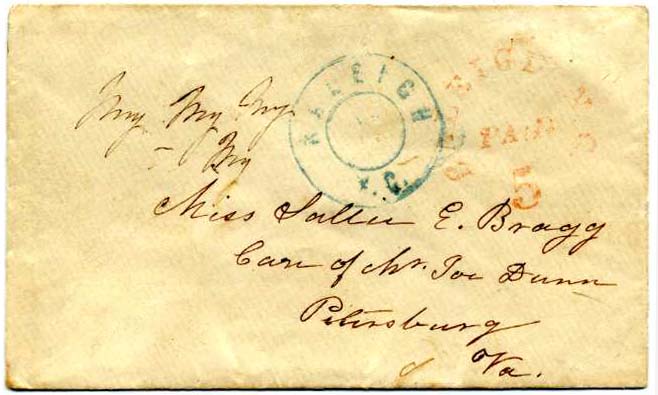 RALEIGH
N.C.
PAID
5
My My My
- My
Miss Sallie E. Bragg
Care of Mr. Joe Dunn
Petersburg
Va.